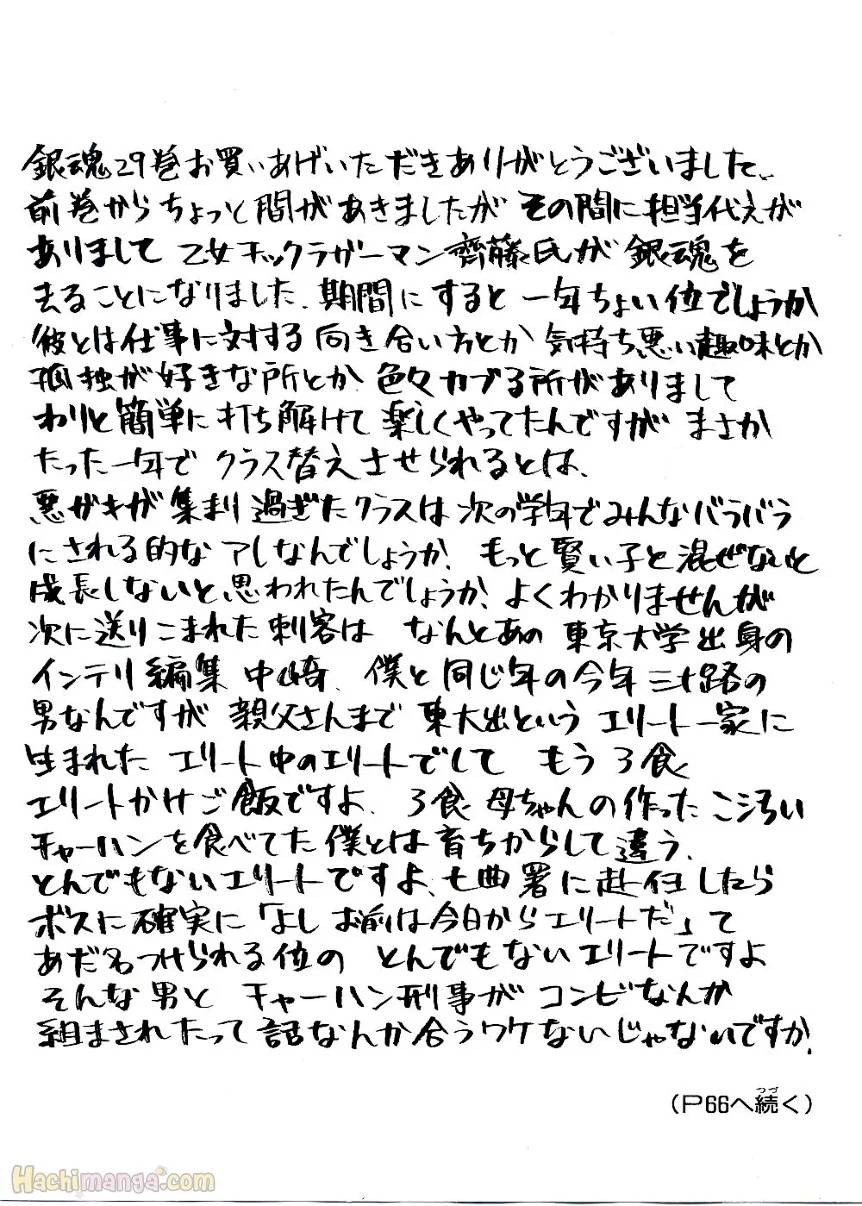 銀魂29巻お買いあげいただきありがとうございました。
前巻からちょっと間があきましたが その間に担当代えが
ありまして 乙女チックラガーマン齊藤氏が 銀魂を
去ることになりました。期間にすると 一年ちょい位でしょうか
彼とは仕事に対する向き合い方とか 気持ち悪い趣味とか
孤独が好きな所とか 色々カブる所がありまして
わりと簡単に打ち解けて 楽しくやってたんですが まさか
たった一年で クラス替えさせられるとは、
悪ガキが集まり過ぎたクラスは次の学年でみんなバラバラ
にされる的な アレなんでしょうか。もっと賢い子と混ぜないと
成長しないと思われたんでしょうか。よくわかりませんが
次に送りこまれた刺客は なんとあの 東京大学出身の
インテリ編集 中崎、僕と同じ年の今年三十路の
男なんですが 親父さんまで 東大出という エリート一家に
生まれた エリート中のエリートでして もう3食
エリートかけご飯ですよ、3食母ちゃんの作ったこ汚い
チャーハンを食べてた僕とは育ちからして違う、
とんでもないエリートですよ、七曲署に赴任したら
ボスに確実に「よし お前は今日からエリートだ」て
あだ名つけられる位の とんでもないエリートですよ
そんな男と チャーハン刑事が コンビなんか
組まされたって 話なんか合うワケないじゃないですか。
(P66へ続く)
つづ
Hachimanga.com